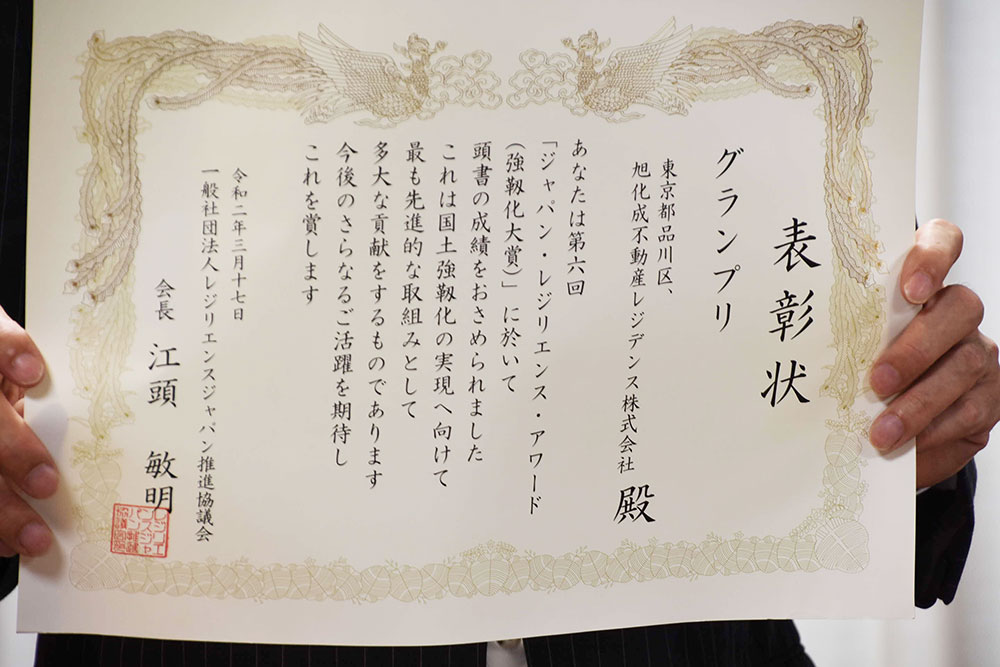 表彰状
グランプリ
東京都品川区、
旭化成不動産レジデンス株式会社 殿
あなたは第六回
「ジャパン・レジリエンス・アワード
(強靱化大賞)」に於いて
頭書の成績をおさめられました
これは国土強靱化の実現へ向けて
最も先進的な取組みとして
多大な貢献をするものであります
今後のさらなるご活躍を期待し
これを賞します
令和二年三月十七日
一般社団法人レジリエンスジャパン推進協議会
会長 江頭 敏明